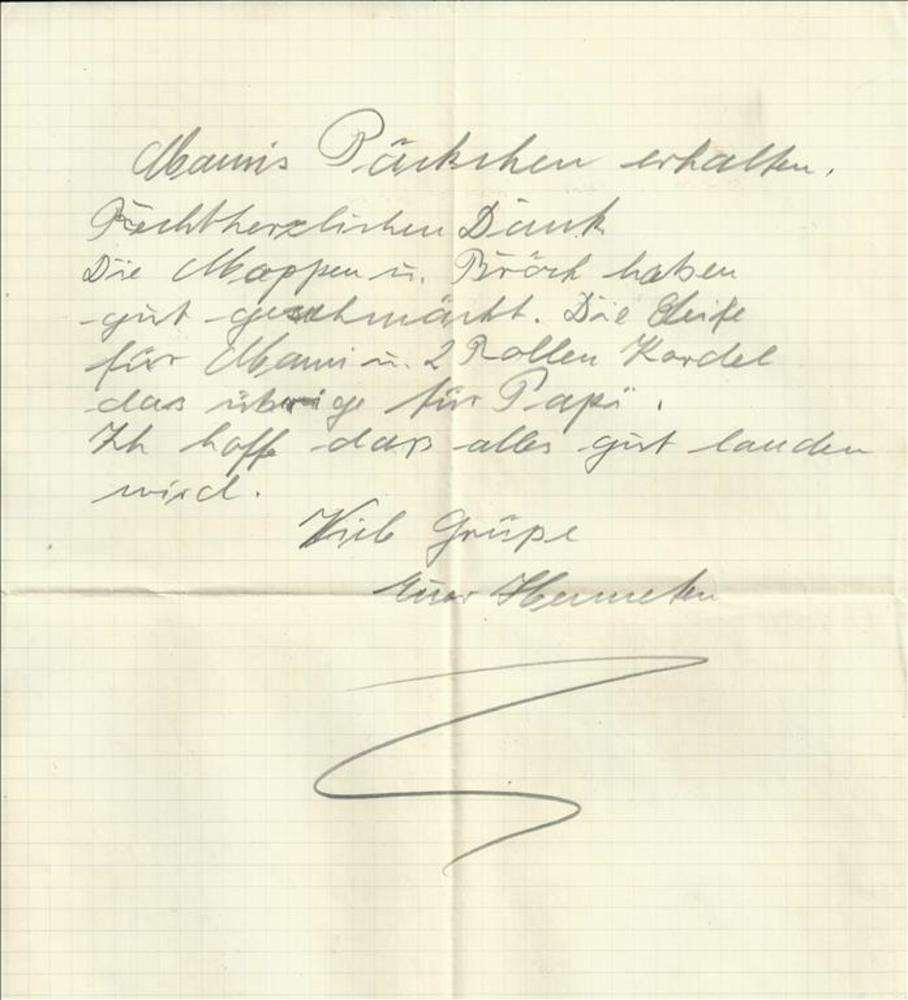 Mamis Päckchen erhalten.
Recht herzlichen Dank
Die Moppen u. Bröck haben
gut geschmäckt. Die Seife
für Mami u. 2 Rollen Kordel
das übrige für Papi.
Ich hoffe daß alles gut landen
wird.
Viele Grüße
Euer